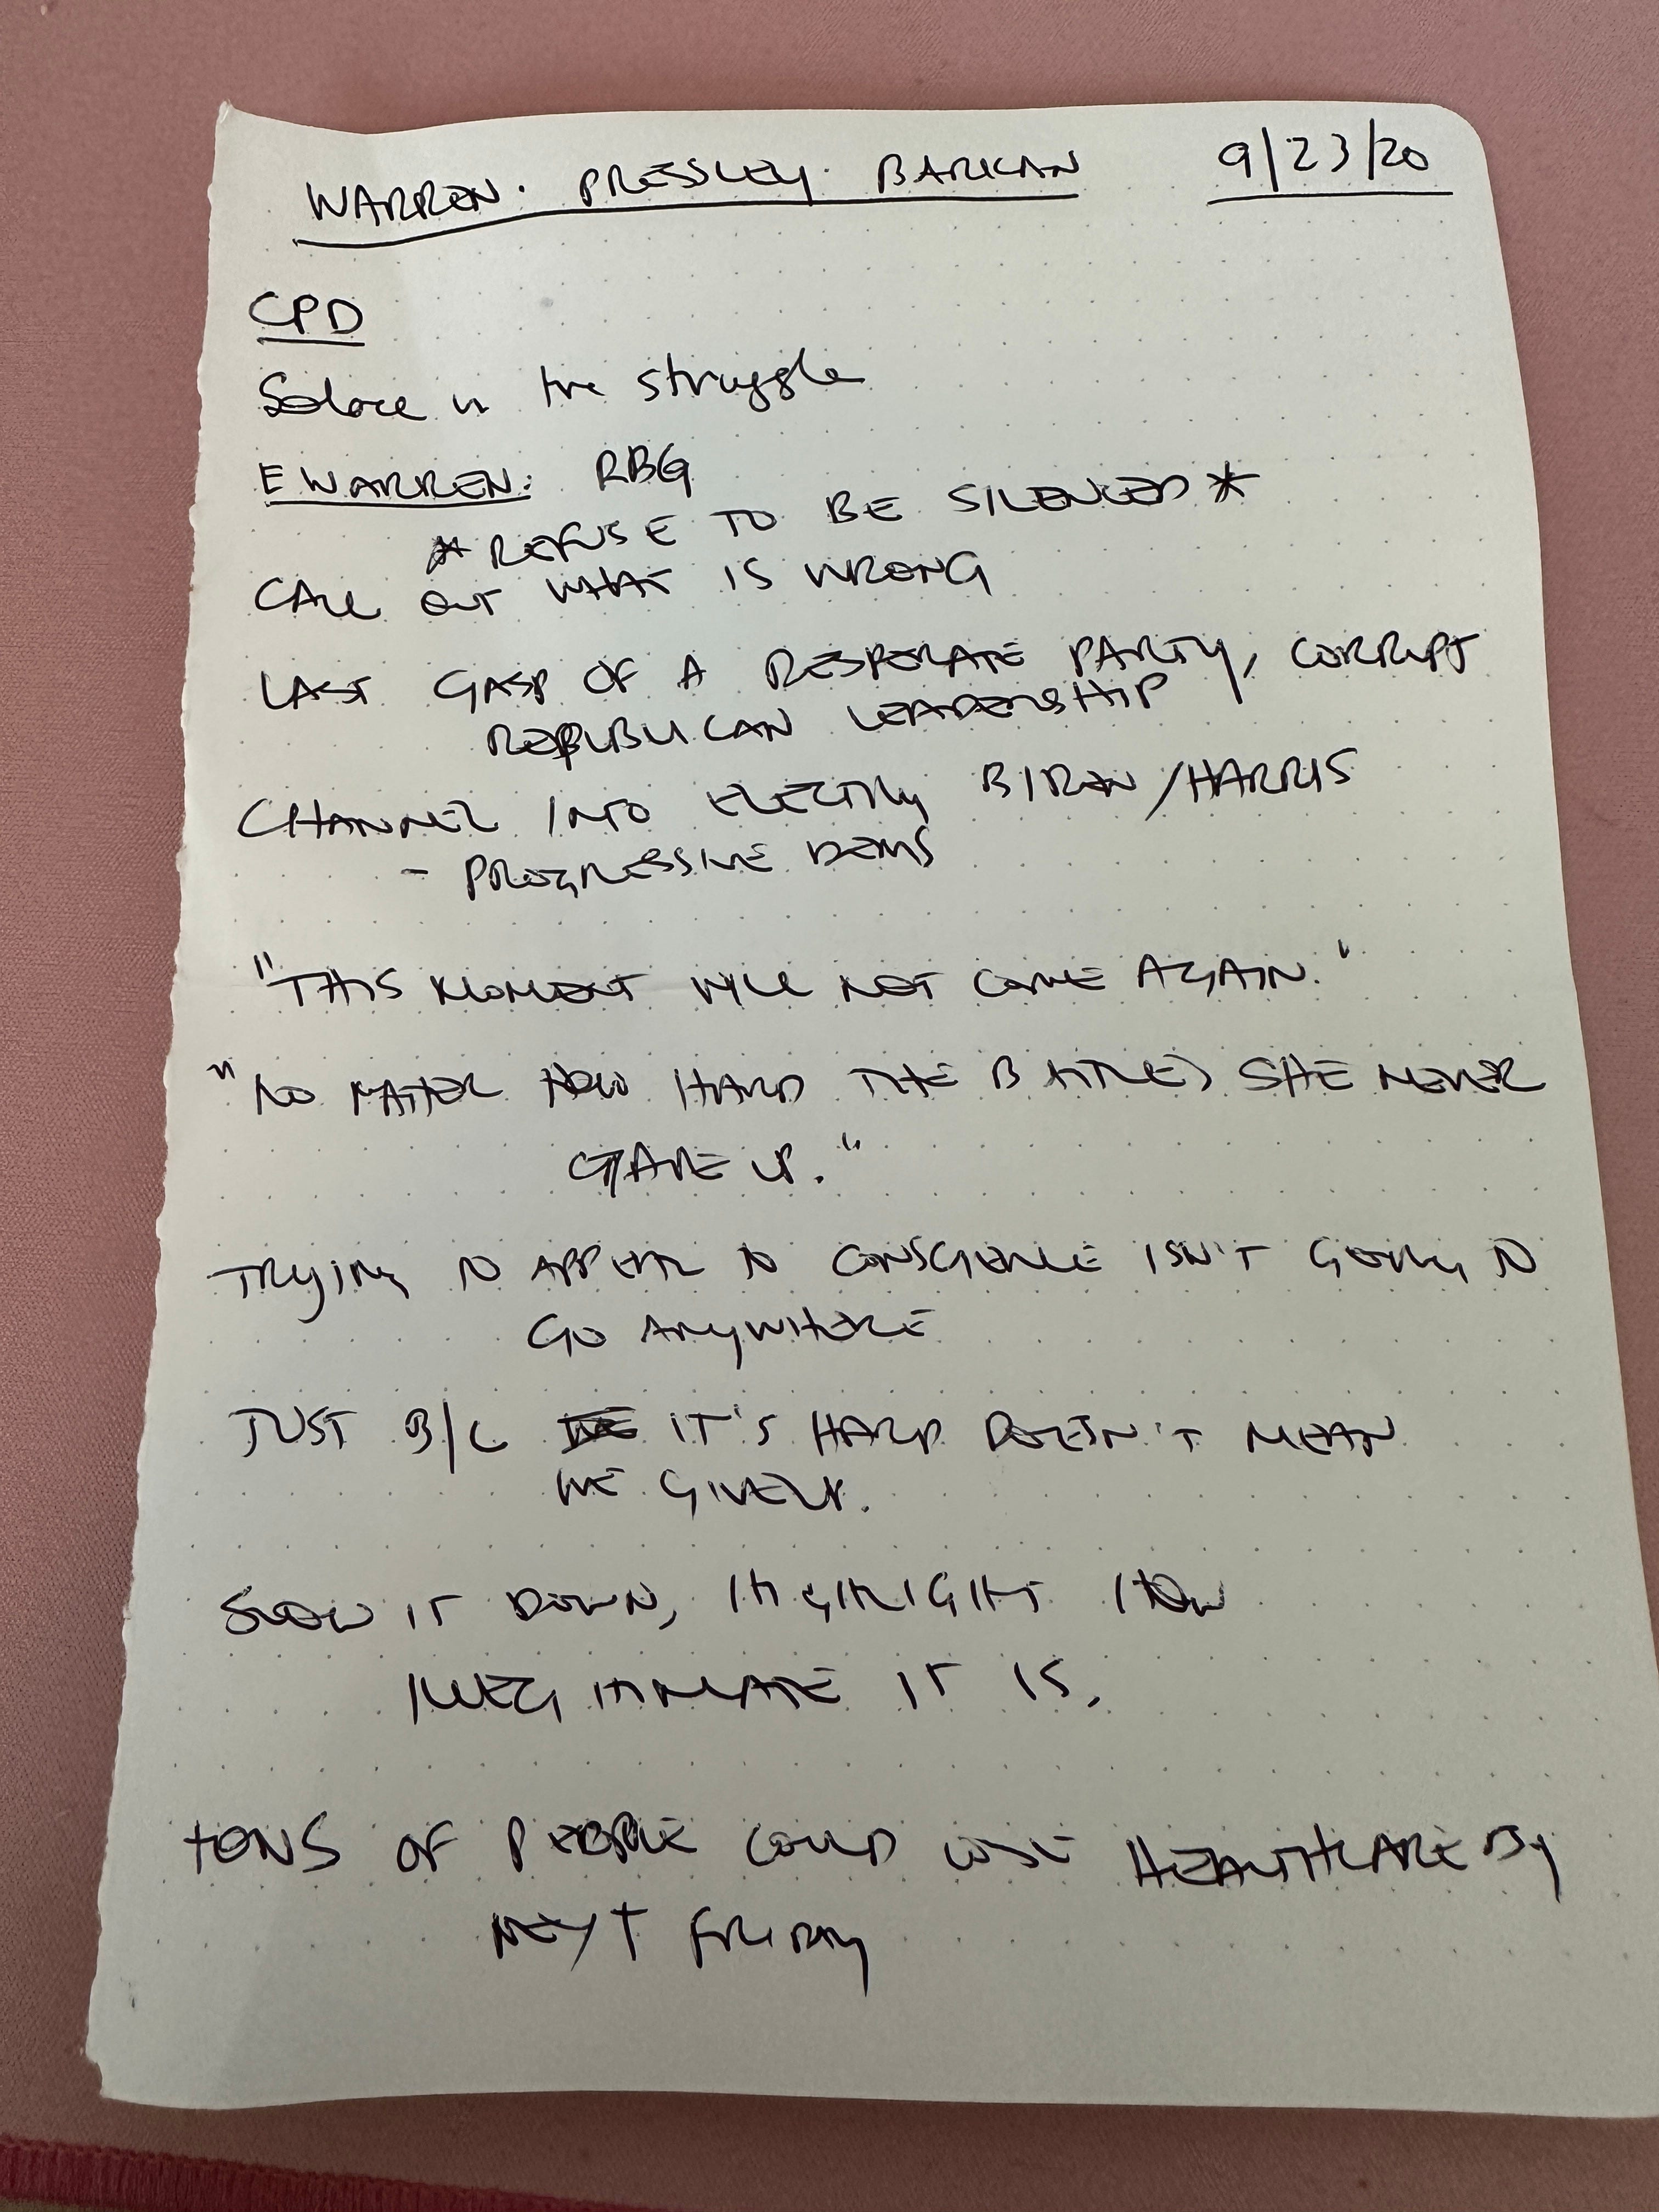 WARREN · PRESSLEY · BARKAN 9/23/20
CPD
Solace in the struggle
E WARREN: RBG
* REFUSE TO BE SILENCED *
CALL OUT WHAT IS WRONG
LAST GASP OF A DESPERATE PARTY, CORRUPT
REPUBLICAN LEADERSHIP
CHANNEL INTO ELECTING BIDEN/HARRIS
- PROGRESSIVE DEMS
"THIS MOMENT WILL NOT COME AGAIN."
"NO MATTER HOW HARD THE BATTLES SHE NEVER
GAVE UP."
TRYING TO APPEAL TO CONSCIENCE ISN'T GOING TO
GO ANYWHERE
JUST B/C IT'S HARD DOESN'T MEAN
WE GIVE UP.
SLOW IT DOWN, HIGHLIGHT HOW
ILLEGITIMATE IT IS.
TONS OF PEOPLE COULD LOSE HEALTHCARE BY
NEXT FRIDAY